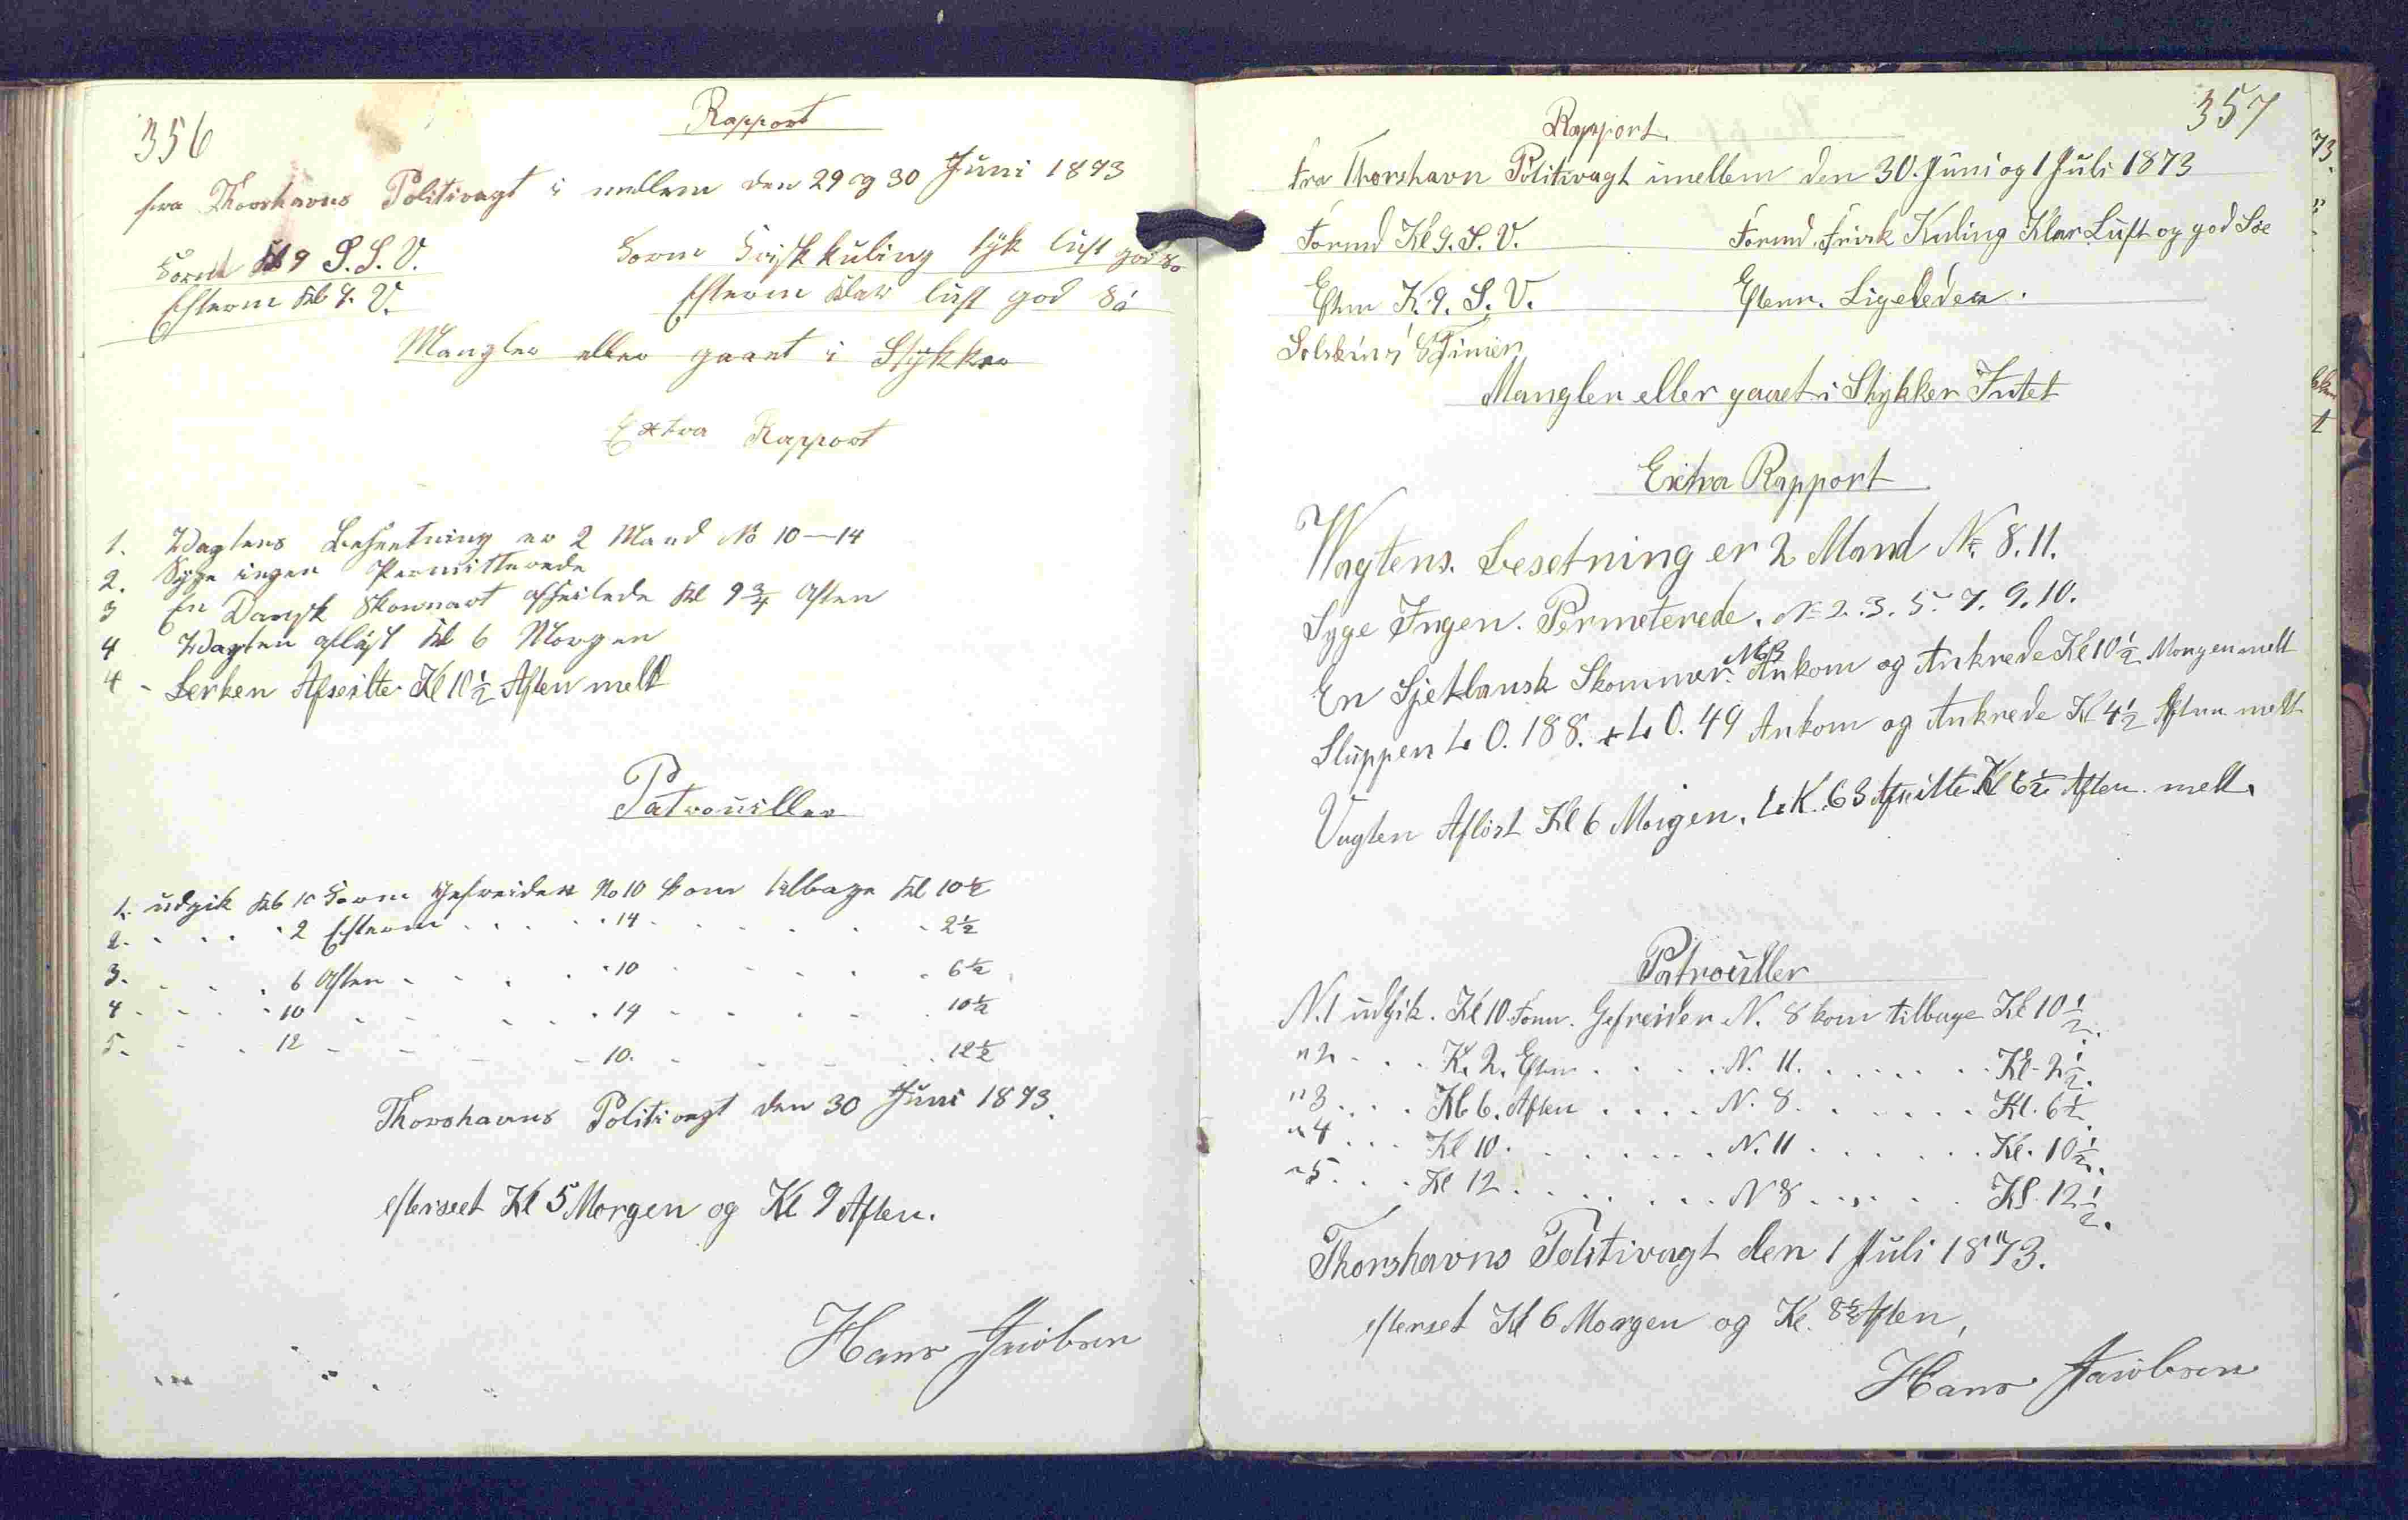 356
Rapport
fra Thorshavns Politivagt i mellem den 29 og 30 Juni 1873
Form Kl 9 S.S.V.
Form Frisk kuling tyk luft god So
Efterm Kl 9. V.
Efterm klar luft god Sö
Mangler eller gaaet i Stykker
Extra Rapport
1. Wagtens Besætning er 2 Mand No 10—14
2. Syge ingen Permitterede
3 En Dansk Skonnart afseilede Kl 9 3/4 Aften
4 Wagten afløst Kl 6 Morgen
4 - Lerken Afseilte Kl 10 1/2 Aften melt
Patrouiller
1. udgik Kl 10 Form Gefreider No 10 kom tilbage Kl 10 1/2
2. . . . . 2 Efterm . . . . 14 . . . . . 2 1/2
3. . . . 6 Aften . . . . 10 . . . . 6 1/2
4 . . . . 10 . . . . 14 . . . . 10 1/2
5. . . . 12 . . . . 10. . . . . 12 1/2
Thorshavns Politivagt den 30 Juni 1873.
efterseet Kl 5 Morgen og Kl 9 Aften.
Hans Jacobsen
357
Rapport.
fra Thorshavn Politivagt imellem den 30. Juni og 1 Juli 1873
Formd Kl 9. S. V.
Formd. Frisk Kuling Klar Luft og god Søe
Eftm K. 9. S. V.
Efterm. Ligeledes.
Solskin i
Mangler eller gaaet i Stykker Intet
Extra Rapport
Wagtens. Besetning er 2 Mand No. 8. 11.
Syge Ingen. Permeterede. No 2. 3. 5. 7. 9. 10.
En Sjetlansk Skonnner. Ankom og Ankrede Kl 10 1/2 Morgen melt
Sluppen L. O. 188. + L. O. 49 Ankom og Ankrede Kl 4 1/2 Aften melt
Vagten Afløst Kl 6 Morgen. L. K. 63 Afseilte Kl 6 1/2 Aften melt.
Patrouiller
N. 1 udgik. Kl 10 Form. Gefreider N. 8 kom tilbage Kl 10 1/2.
" 2 - . . K. 2. Eftm . . . . N. 11. . . . . . . Kl - 2 1/2.
" 3 . . . Kl. 6. Aften . . . . N. 8. . . . . . . Kl. 6 1/2.
" 4 . . . Kl 10. . . . . . . N. 11 . . . . . . Kl. 10 1/2.
" 5. . . . Kl 12 . . . . . . . N 8 . . . . . . Kl. 12 1/2.
Thorshavns Politivagt den 1 Juli 1873.
efterset Kl 6 Morgen og Kl. 8 1/2 Aften,
Hans Jacobsen
73.